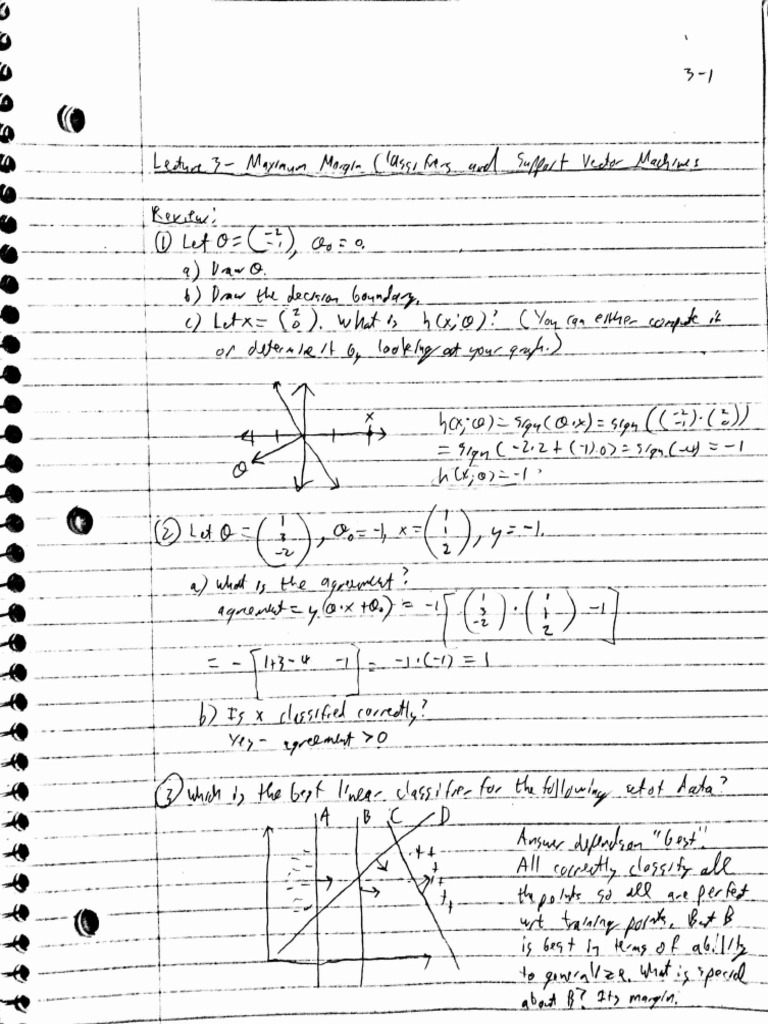 3-1
Lecture 3 - Maximum Margin Classifiers and Support Vector Machines
Review:
① Let θ = (-2 -1), θ₀ = 0.
a) Draw θ.
b) Draw the decision boundary.
c) Let x = (2 0). What is h(x;θ)? (You can either compute it
or determine it by looking at your graph.)
x
θ
h(x;θ) = sign(θ·x) = sign((-2 -1)·(2 0))
= sign(-2·2+(-1)·0) = sign(-4) = -1
h(x;θ) = -1.
② Let θ = (1 3 -2), θ₀ = -1, x = (1 1 2), y = -1.
a) What is the agreement?
agreement = y(θ·x+θ₀) = -1[(1 3 -2)·(1 1 2) -1]
= -[1+3-4 -1] = -1·(-1) = 1
b) Is x classified correctly?
Yes - agreement > 0
③ Which is the best linear classifier for the following set of data?
A B C D
Answer depends on "best".
All correctly classify all
the points so all are perfect
wrt training points. But B
is best in terms of ability
to generalize. What is special
about B? Its margin.